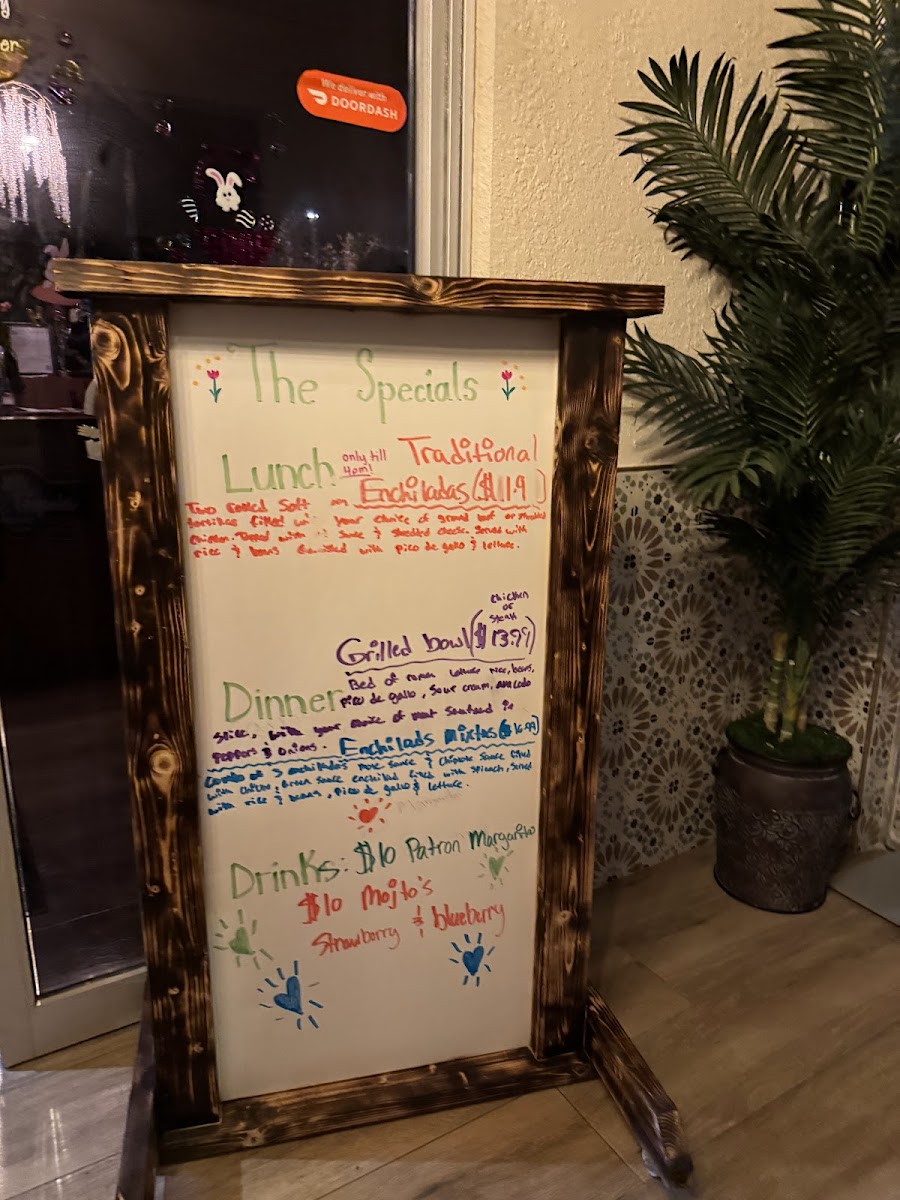 er
We deliver with
DOORDASH
The Specials
Lunch only till 4pm! Traditional
Enchiladas ($11.9 )
Two rolled soft
tortillas filled w/ your choice of ground beef or shredded
chicken. Topped with sauce & shredded cheese. Served with
rice & beans with pico de gallo & lettuce.
chicken
or
steak
Grilled bowl ($13.99)
Dinner
Bed of lettuce rice, beans,
pico de gallo, sour cream, avacado
slice, with your choice of meat
peppers & onions. Enchilads Mixtas ($16.99)
Combo of 3 enchiladas mole sauce & chipotle sauce filled
with chicken, Green sauce enchilad filled with spinach, served
with rice & beans, pico de gallo & lettuce.
Drinks: $10 Patron Margarita
$10 Mojito's
Strawberry & blueberry